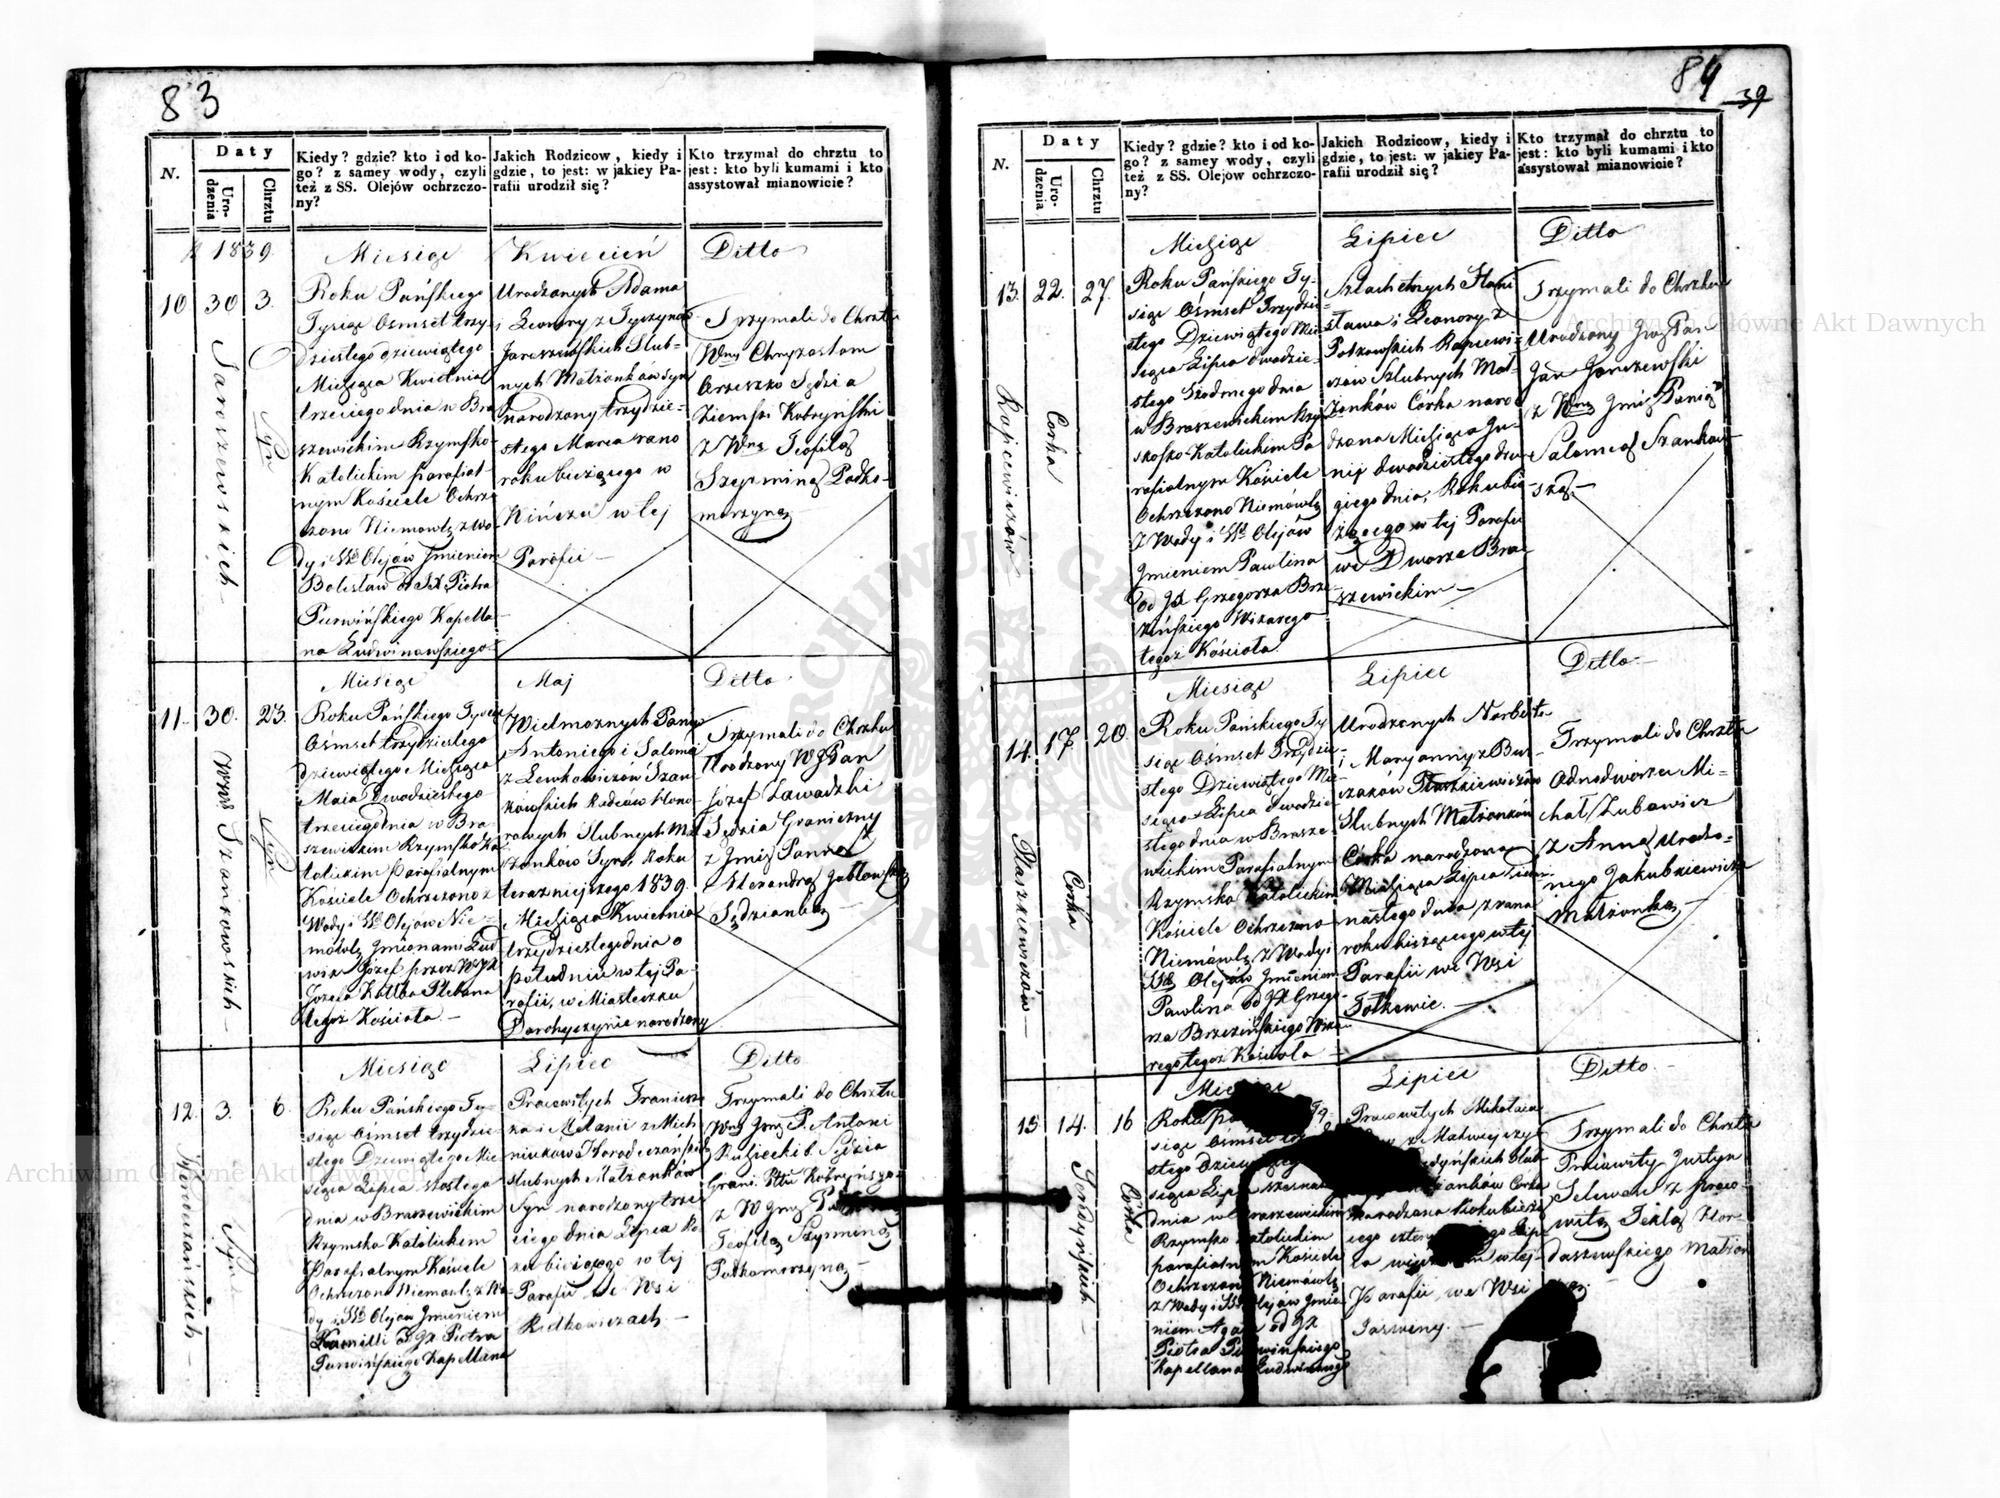 83
N.
Daty
Uro-
dzenia
Chrztu
Kiedy? gdzie? kto i od ko-
go? z samey wody, czyli
też z SS. Olejów ochrzczo-
ny?
Jakich Rodzicow, kiedy i
gdzie, to jest: w jakiey Pa-
rafii urodził się?
Kto trzymał do chrztu to
jest: kto byli kumami i kto
assystował mianowicie?
1839.
Miesiąc
Kwiecień
Ditto
10
30
3.
Jaroszewskich
Syn
Roku Pańskiego
Tysiąc Ośmset trzy-
dziestego dziewiątego
Miesiąca Kwietnia
trzeciego dnia w Bra
szewickim Rzymsko-
Katolickim parafial-
nym Kościele Ochrz-
czono Niemowlę z Wo-
dy i SS. Olejów Imieniem
Bolesław od JX Piotra
Purwińskiego Kapella-
na Ludwinowskiego
Urodzonych Adama
i Leonory z Tyszyna
Jaroszewskich Slub-
nych Małżonków Syn
narodzony trzydzie-
stego Marca rano
roku bieżącego w
w tej
Parafii
Trzymali do Chrztu
Wny Chryzostom
Orzeszko Sędzia
Ziemski Kobryński
z Wną Teofilą
Szyrminą Podko-
morzyną
Miesiąc
Maj
Ditto
11.
30.
23.
Szankowskich
Syn
Roku Pańskiego Tysiąc
Ośmset trzydziestego
dziewiątego Miesiąca
Maia Dwodziestego
trzeciego dnia w Bra-
szewickim Rzymsko Ka
tolickim Parafialnym
Kościele Ochrzczono z
Wody i SS. Olejów Nie-
mówlę Imionami Lud
wik Józef przez WJX
Józefa Plebana
tegoż Kościoła.
Wielmożnych Panów
Antoniego i Salomei
z Lewkowiczów Szan
kowskich
Slubnych Mał
żonków Syn, Roku
teraznieiszego 1839.
Miesiąca Kwietnia
trzydziestego dnia o
południu w tej Pa-
rafii, w Miasteczku
narodzony
Trzymali do Chrztu
Urodzony WJPan
Józef Zawadzki
Sędzia Graniczny
z Jmię Panną
Alexandrą
Sędzianką
Miesiąc
Lipiec
Ditto
12.
3.
6.
Horodczańskich
Syn
Roku Pańskiego Ty-
siąc Ośmset trzydzie-
stego Dziewiątego Mie
siąca Lipca szóstego
dnia w Braszewickim
Rzymsko Katolickim
Parafialnym Kościele
Ochrzczono Niemowlę z Wo
dy i SS. Olejów Imieniem
Kamilli JX Piotra
Purwińskiego Kapellana
Pracowitych Francisz
ka i Melanii z Mich
niuków Horodczańskich
slubnych Małżonków
Syn narodzony trze
ciego dnia Lipca Ro
ku bieżącego w tej
Parafii we Wsi
Redkowiczach
Trzymali do Chrztu
Wny Jmy P. Antoni
Ruszecki b. Sędzia
Grani. Pttu Kobryńsgo.
z W Jmę
Teofilą Szyrminą
Podkomorzyną
84
39
N.
Daty
Uro-
dzenia
Chrztu
Kiedy? gdzie? kto i od ko-
go? z samey wody, czyli
też z SS. Olejów ochrzczo-
ny?
Jakich Rodzicow, kiedy i
gdzie, to jest: w jakiey Pa-
rafii urodził się?
Kto trzymał do chrztu to
jest: kto byli kumami i kto
assystował mianowicie?
Miesiąc
Lipiec
Ditto
13.
22.
27.
Rapcewiczów
Corka
Roku Pańskiego Ty-
siąc Ośmset Trzydzie-
stego Dziewiątego Mie-
siąca Lipca dwudzie-
stego Siodmego dnia
w Braszewickim Rzym
skosko-Katolickim Pa
rafialnym Kościele
Ochrzczono Niemówlę
z Wody i SS. Olejów
Imieniem Pawlina
od JX Grzegorza Brze-
zińskiego Wikarego
tegoż Kościoła
Szlachetnych Stani
sława i Leonory z
Rapcewi-
czów Slubnych Mał-
żonków Córka naro-
dzona Miesiąca Ju-
nij dwudziestego dru
giego dnia, Roku bie
żącego w tej Parafii
we Dworze Bra-
szewickim
Trzymali do Chrztu
Urodzony Pan
Jan Janczewski
z Wną Jmią Panią
Salomeą Szankow-
ską.
Miesiąc
Lipiec
Ditto
14.
17.
20
Ptaszkiewiczów
Corka
Roku Pańskiego Ty
siąc Ośmset Trzydzie
stego Dziewiątego Mie
siąca Lipca dwudzie
stego dnia w Brasze
wickim Parafialnym
Rzymsko Katolickim
Kościele Ochrzczono
Niemówlę z Wody i
SS. Olejów Imieniem
Pawlina od JX Grzego
rza Brzezińskiego Wika
rego tegoż Kościoła
Urodzonych Norberta
i Maryanny z Bur
czaków Ptaszkiewiczów
Slubnych Małżonków
Córka narodzona
Miesiąca Lipca siedm
nastego dnia z rana
roku bieżącego w tej
Parafii we Wsi
Trzymali do Chrztu
Odnodworzec Mi-
chał Zubowicz
z Anną Urodzo-
nego Jakubkiewicza
Małżonką
Miesiąc
Lipiec
Ditto
15
14.
16
Corka
siąc Ośmset
stego Dziewiątego
siąca Lipca
dnia w Braszewickim
Rzymsko Katolickim
parafialnym Kościele
Ochrzczono Niemówlę
z Wody i SS. Olejów Imie
niem Agata od JX
Piotra Purwińskiego
Kapellana Ludwinowsgo
Pracowitych Mikołaia
Corka
narodzona Roku bieżą
cego
w tej
Parafii we Wsi
Trzymali do Chrztu
Pracowity Justyn
z praco-
witą Teklą Hor-
daszewskiego Małżon
Archiwum Główne Akt Dawnych
Archiwum Główne Akt Dawnych